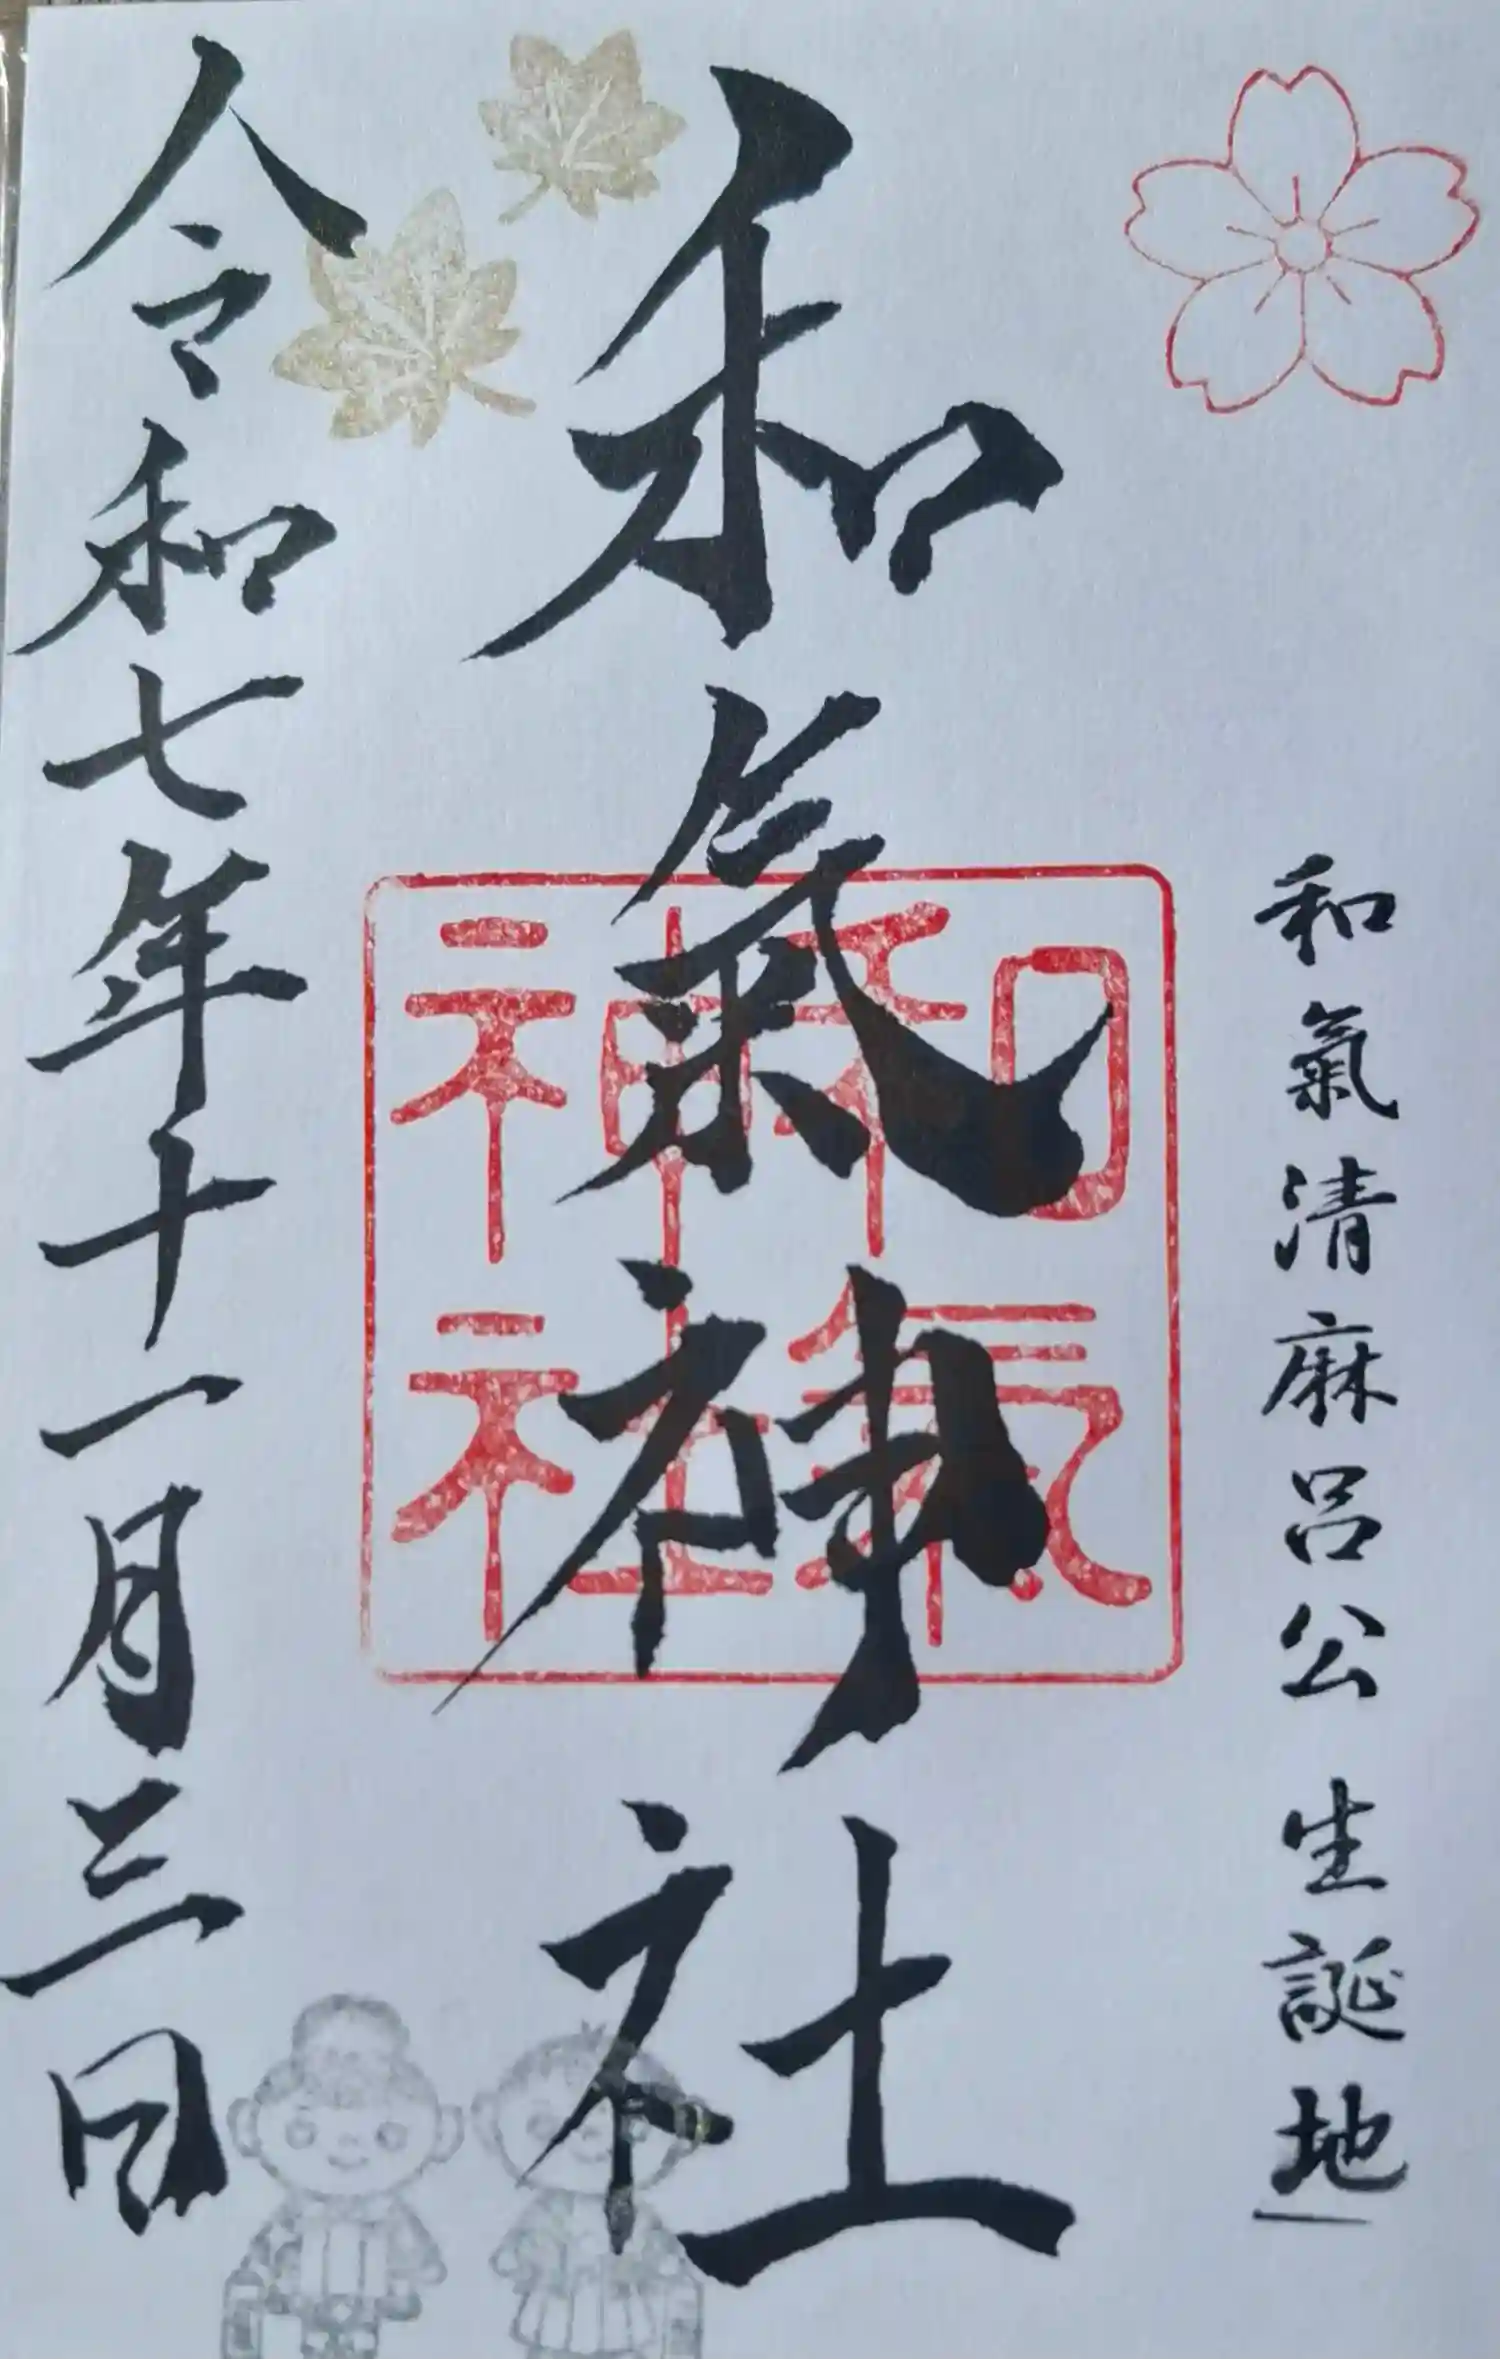 和氣清麻呂公 生誕地
和氣神社
和氣
神社
令和七年十一月三日